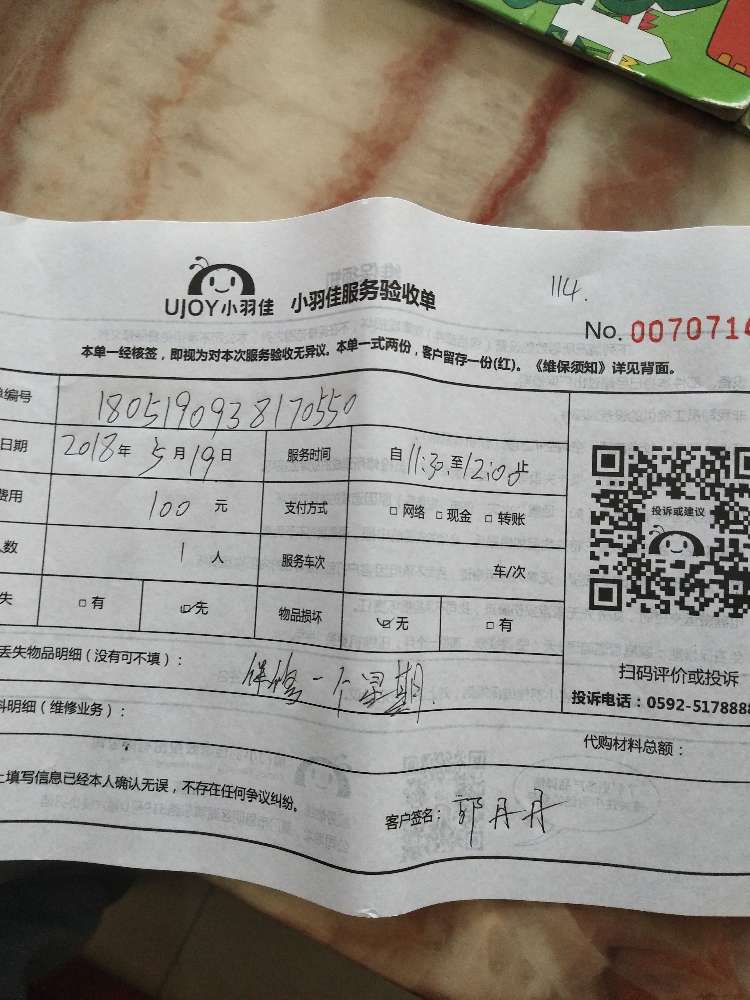 UJOY小羽佳 小羽佳服务验收单
114.
No. 0070714
本单一经核签，即视为对本次服务验收无异议。本单一式两份，客户留存一份(红)。《维保须知》详见背面。
单编号 1805190938170550
日期 2018年5月19日 服务时间 自11:30至12:00止
费用 100 元 支付方式 □ 网络 □ 现金 □ 转账
人数 1 人 服务车次 车/次
失 □ 有 ☑无 物品损坏 ☑ 无 □ 有
投诉或建议
扫码评价或投诉
投诉电话：0592-5178888
丢失物品明细（没有可不填）： 保修一个星期.
料明细（维修业务）：
代购材料总额：
上填写信息已经本人确认无误，不存在任何争议纠纷。
客户签名：郭丹丹